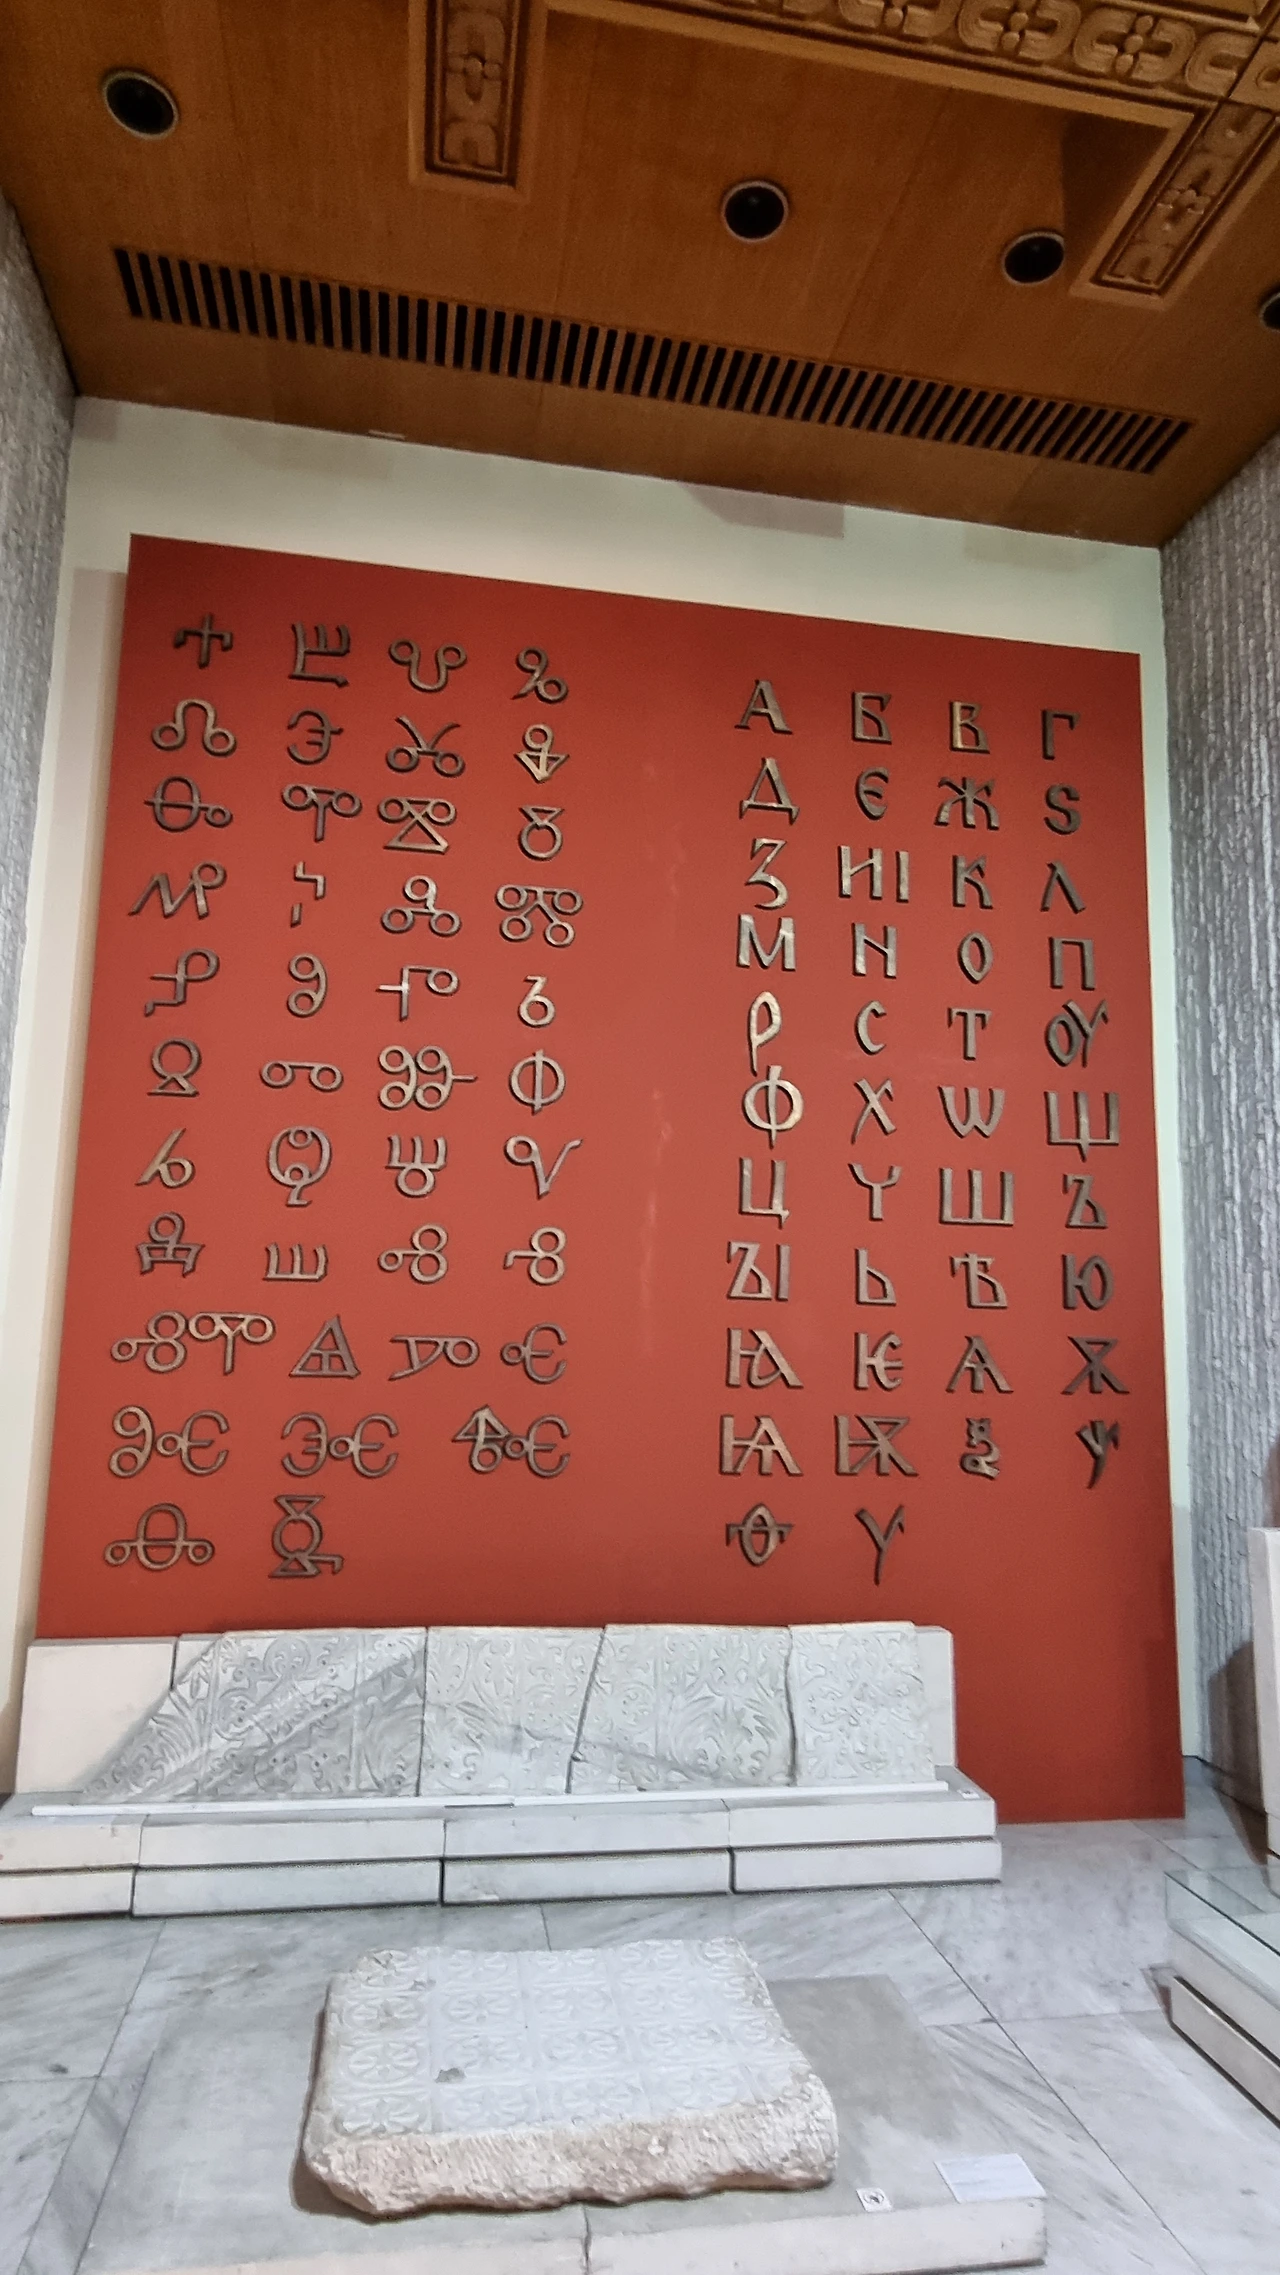 Ⰰ Ⰱ Ⰲ Ⰳ
Ⰴ Ⰵ Ⰶ Ⰷ
Ⰸ Ⰺ Ⰻ Ⰹ
Ⰼ Ⰽ Ⰾ Ⰿ
Ⱀ Ⱁ Ⱂ Ⱃ
Ⱄ Ⱅ Ⱆ Ⱇ
Ⱈ Ⱉ Ⱋ Ⱌ
Ⱍ Ⱎ Ⱏ Ⱐ
ⰟⰊ Ⱑ Ⱓ Ⱔ
Ⱘ Ⱗ Ⱙ
Ⱚ Ⱛ
А Б В Г
Д Є Ж Ѕ
З И І К Л
М Н О П
Р С Т ОУ
Ф Х Ѡ Щ
Ц Ч Ш Ъ
ЪІ Ь Ѣ Ю
Ꙗ Ѥ Ѧ Ѫ
Ѩ Ѭ Ѯ Ѱ
Ѳ Ѵ